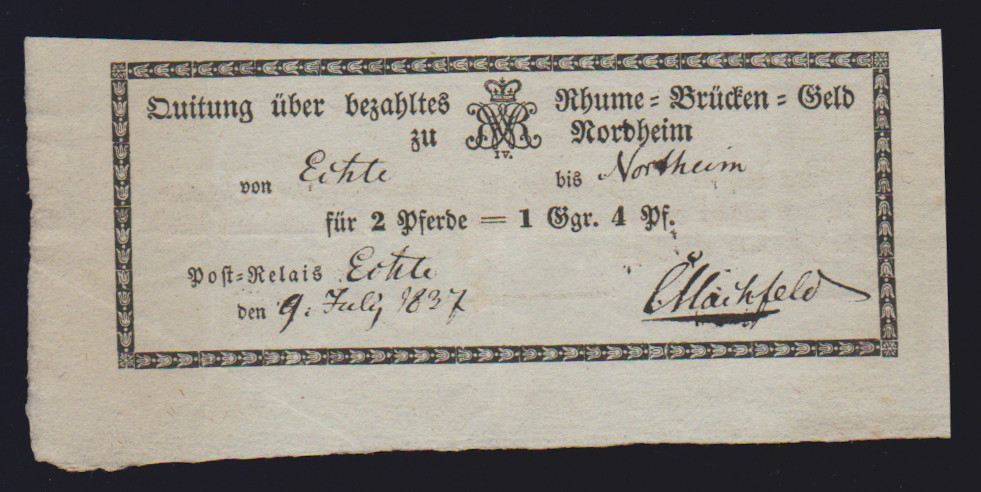 Quitung über bezahltes Rhume=Brücken=Geld
zu IV. Nordheim
von Echte bis Northeim
für 2 Pferde = 1 Ggr. 4 Pf.
Post=Relais Echte
den 9. July 1837